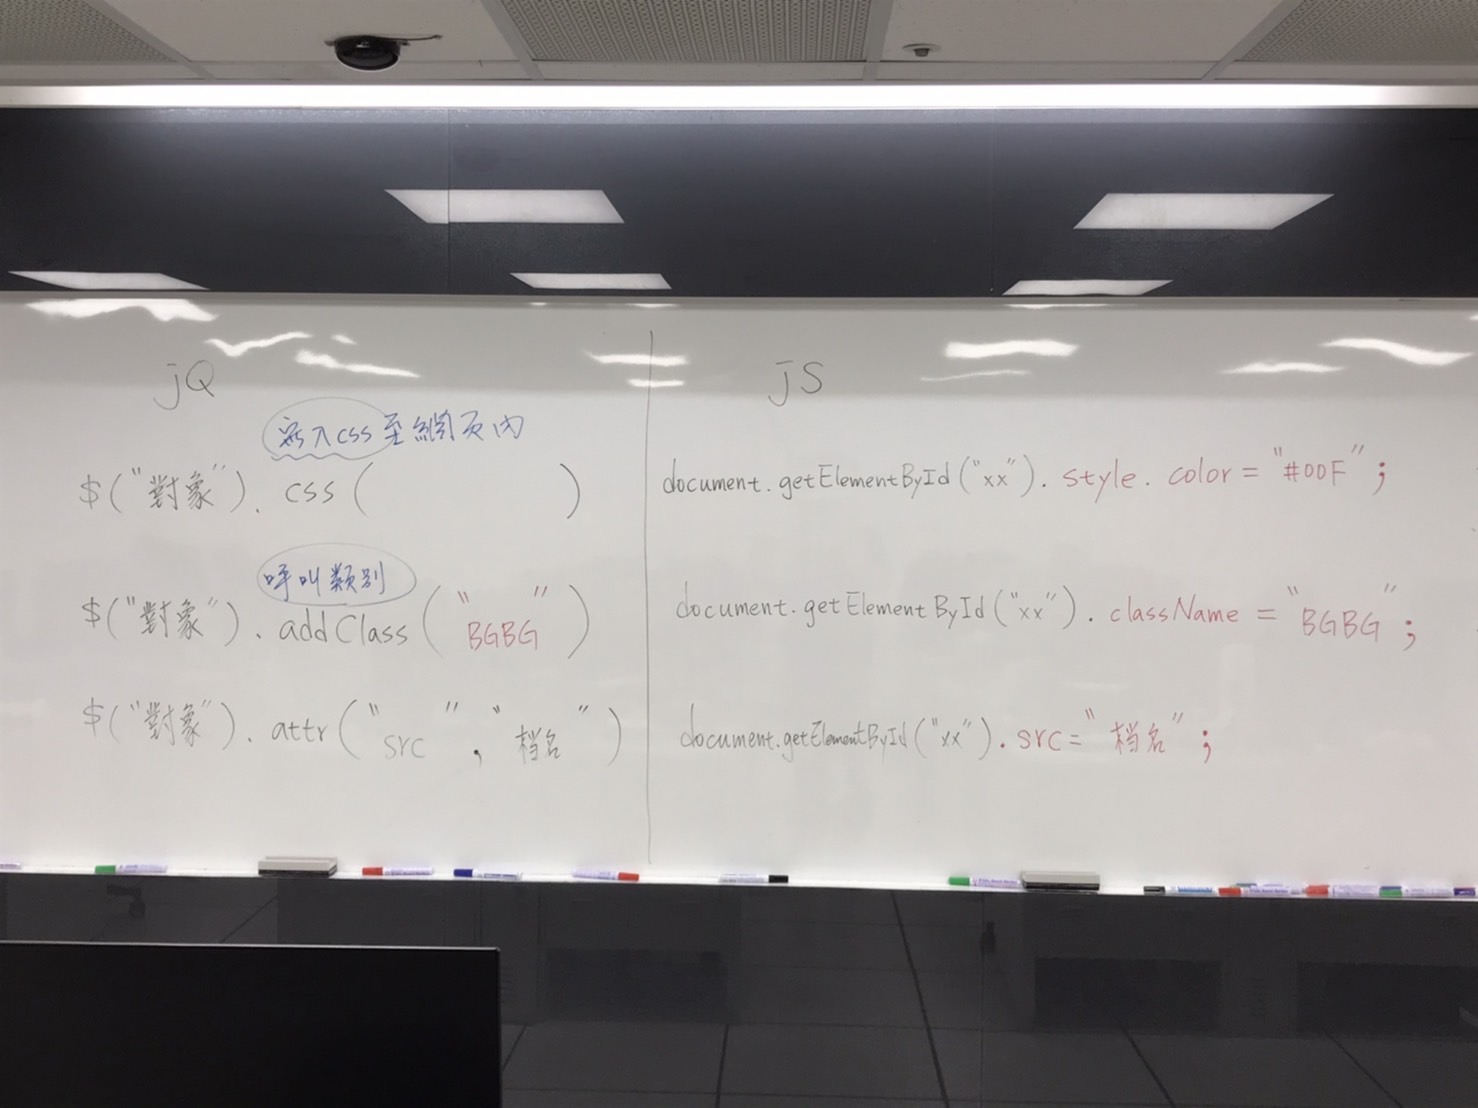 jQ
嵌入css至網页內
$("對象").css(          )
呼叫類別
$("對象").addClass("BGBG")
$("對象").attr("src","档名")
jS
document.getElementById("xx").style.color="#00F";
document.getElementById("xx").className="BGBG";
document.getElementById("xx").src="档名";